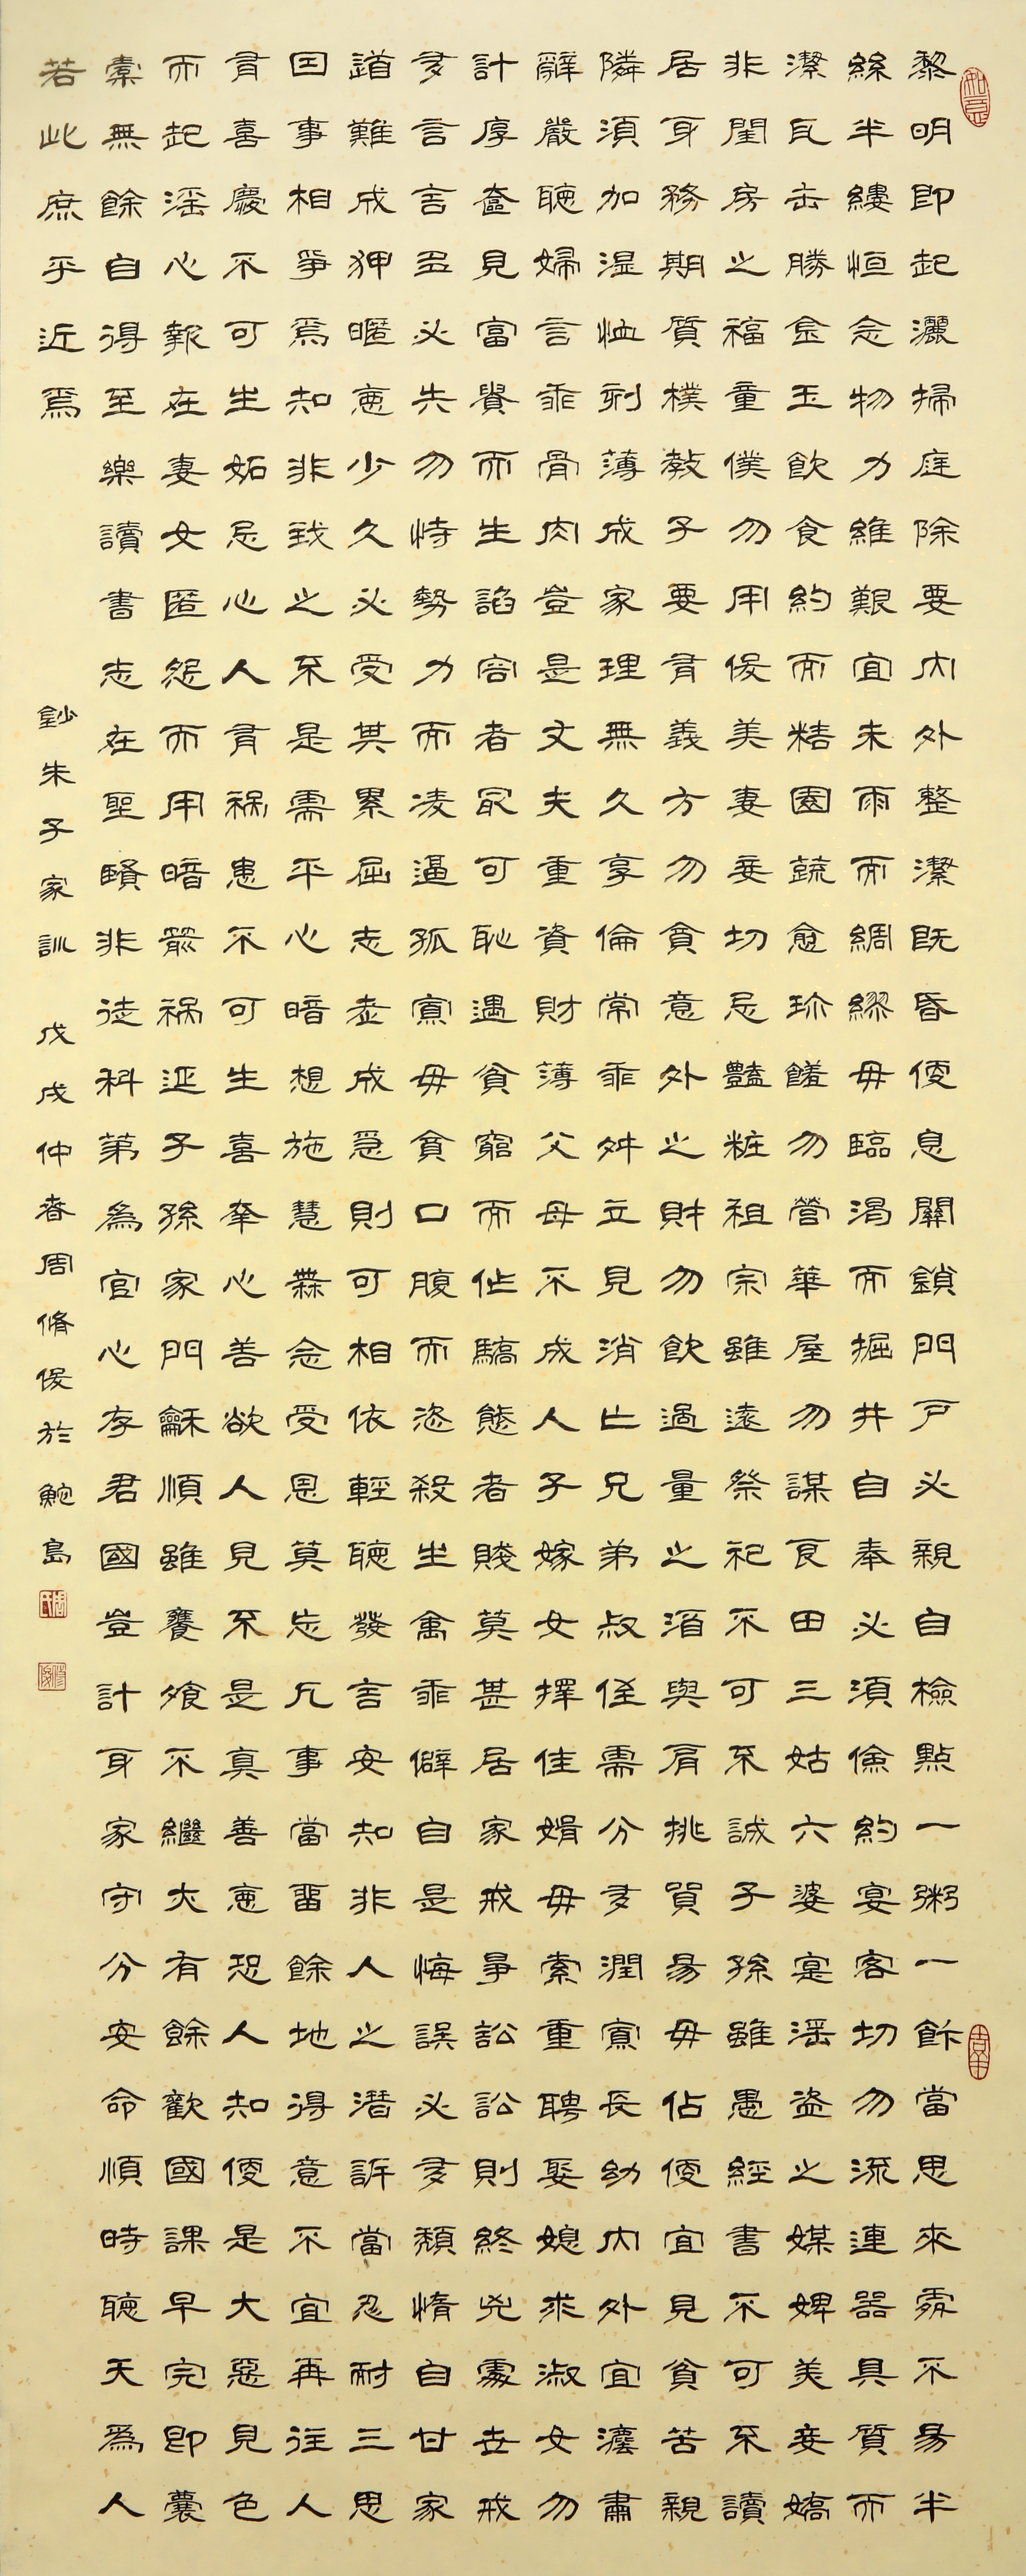 黎明即起灑掃庭除要內外整潔既昏便息關鎖門戶必親自檢點一粥一飯當思來處不易半
絲半縷恒念物力維艱宜未雨而綢繆毋臨渴而掘井自奉必須儉約宴客切勿流連器具質而
潔瓦缶勝金玉飲食約而精園蔬愈珍饈勿營華屋勿謀良田三姑六婆寔淫盜之媒婢美妾嬌
非閨房之福童僕勿用俊美妻妾切忌豔粧祖宗雖遠祭祀不可不誠子孫雖愚經書不可不讀
居身務期質樸教子要有義方勿貪意外之財勿飲過量之酒與肩挑貿易毋佔便宜見貧苦親
隣須加溫恤刻薄成家理無久享倫常乖舛立見消亡兄弟叔侄需分多潤寡長幼內外宜灋肅
辭嚴聽婦言乖骨肉豈是丈夫重資財薄父母不成人子嫁女擇佳婿毋索重聘娶媳求淑女勿
計厚奩見富貴而生諂容者最可恥遇貧窮而作驕態者賤莫甚居家戒爭訟訟則終凶處世戒
多言言多必失勿恃勢力而凌逼孤寡毋貪口腹而恣殺生禽乖僻自是悔誤必多頹惰自甘家
道難成狎暱惡少久必受其累屈志老成急則可相依輕聽發言安知非人之潛訴當忍耐三思
因事相爭焉知非我之不是需平心暗想施慧無念受恩莫忘凡事當留餘地得意不宜再往人
有喜慶不可生妬忌心人有禍患不可生喜幸心善欲人見不是真善惡恐人知便是大惡見色
而起淫心報在妻女匿怨而用暗箭禍延子孫家門龢順雖饔飧不繼亦有餘歡國課早完即囊
橐無餘自得至樂讀書志在聖賢非徒科第為官心存君國豈計身家守分安命順時聽天為人
若此庶乎近焉
鈔朱子家訓 戊戌仲春周脩俊於鮀島